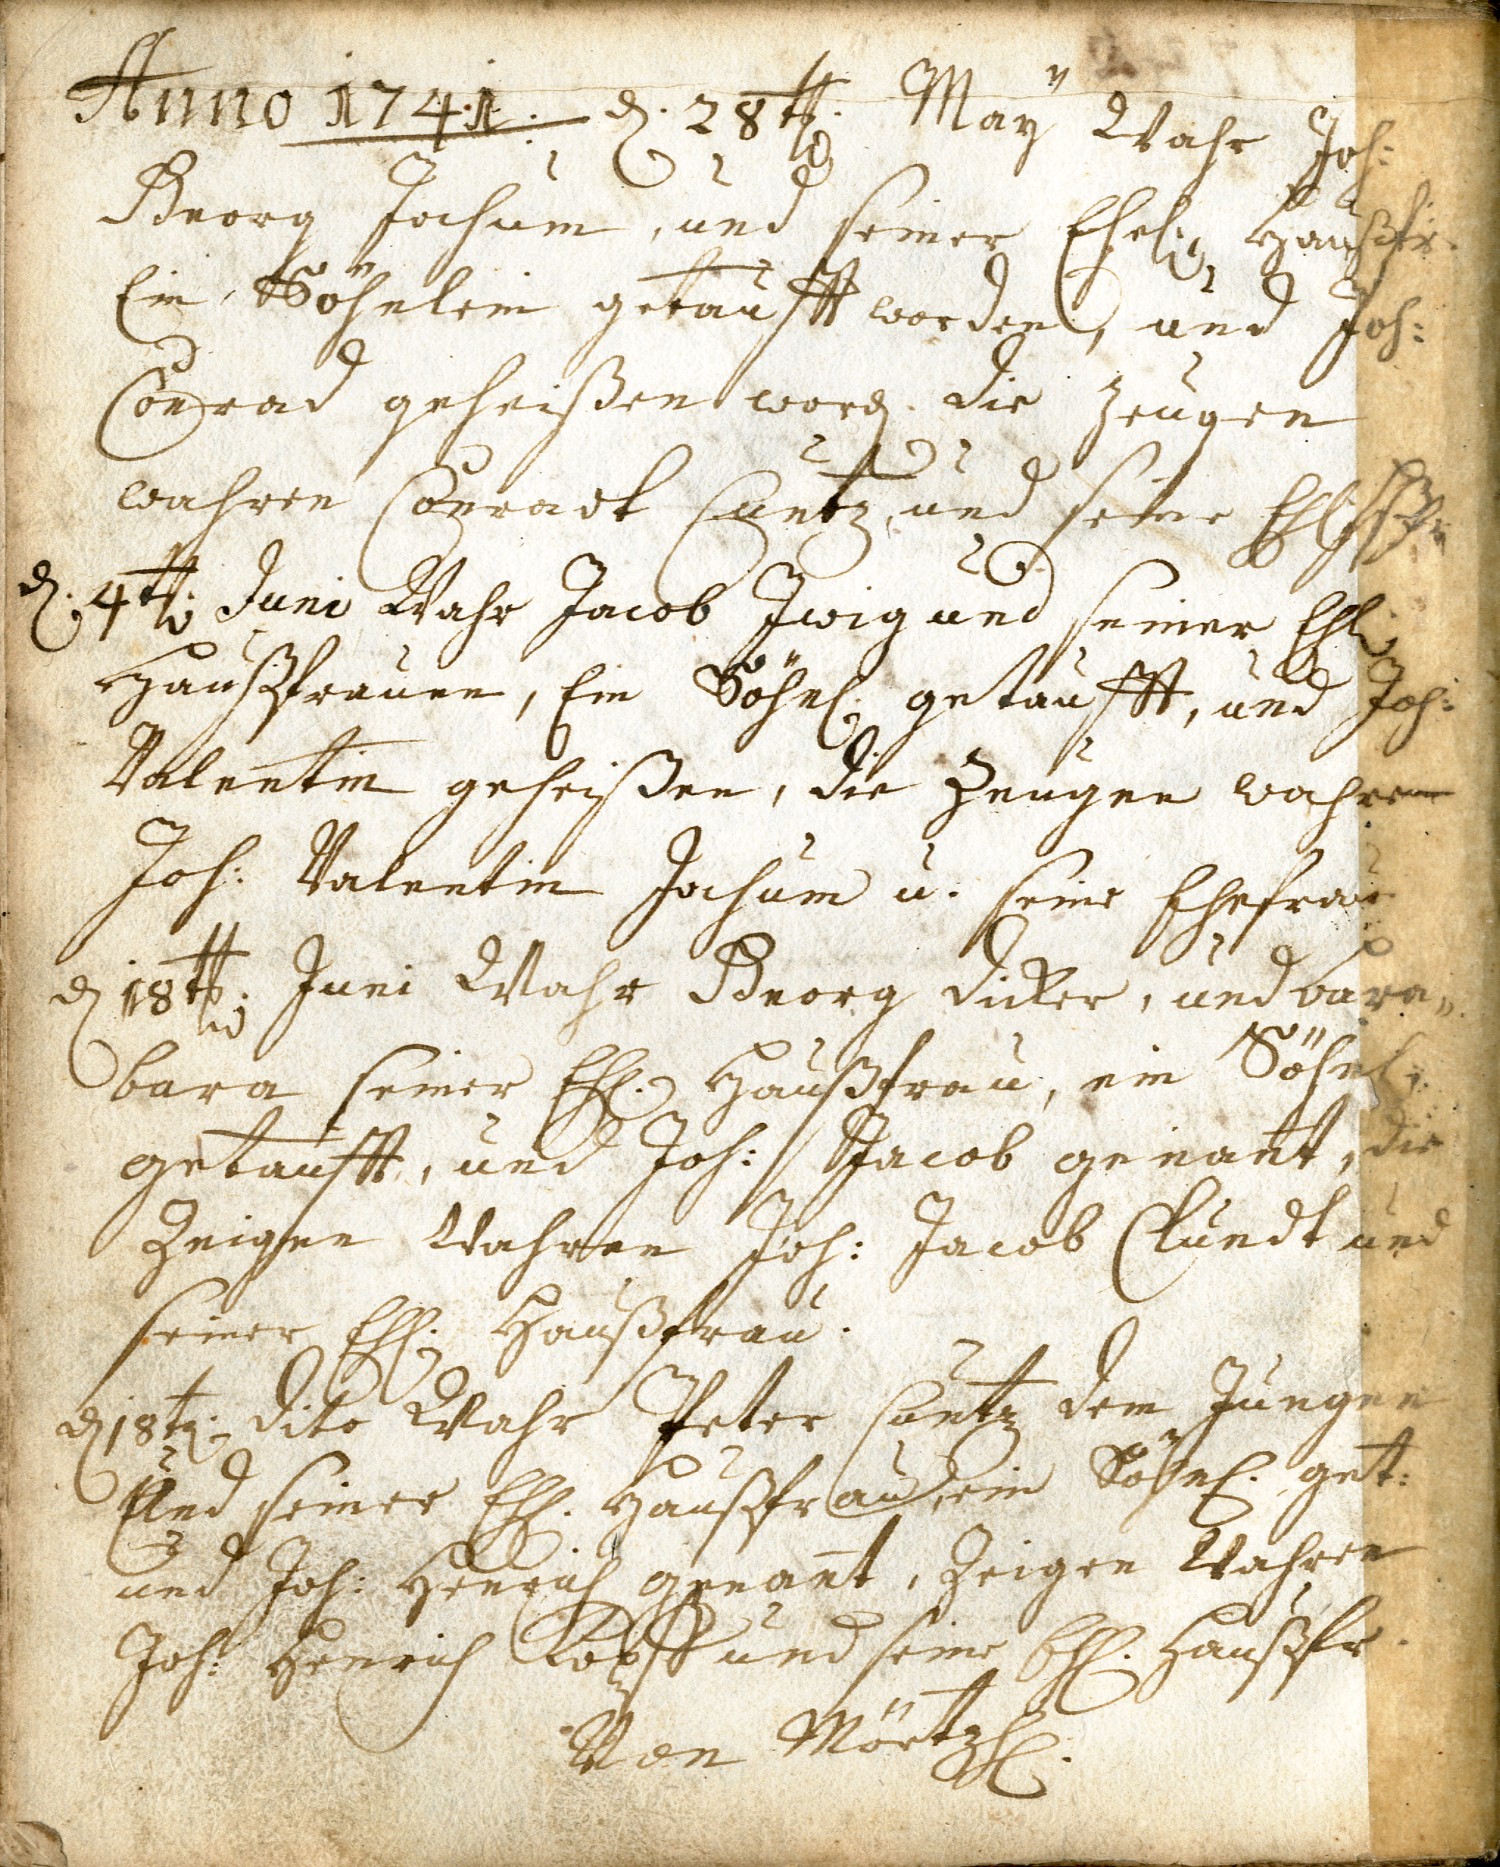 Anno 1741. d. 28tt. May Wahr Joh:
Georg Jochum, und seiner Ehel. Haußfr.
Ein Söhnlein getaufft worden, und Joh:
Conrad geheißen word. die Zeugen
wahren Conradt Cuntz, und seine Ehl.
d. 4tt. Juni Wahr Jacob Zwig und seiner Ehl.
Haußfrauen, Ein Söhnl. getaufft, und Joh:
Valentin geheißen, die Zeugen wahren
Joh: Valentin Jochum u. seine Ehefrau
d 18tt. Juni Wahr Georg dicker, und bara„
bara seiner Ehl. Haußfrau, ein Söhnl.
getaufft, und Joh: Jacob genant, die
Zeigen Wahren Joh: Jacob Clundt und
seiner Ehl. Haußfrau.
d 18t. dito Wahr Peter Cuntz dem Jungen
Und seiner Ehl. Haußfrau, ein Söhnl. get:
und Joh: Henrich genant, Zeigen Wahren
Joh: Henrich Kopff und seine Ehl. Haußfr.
Von